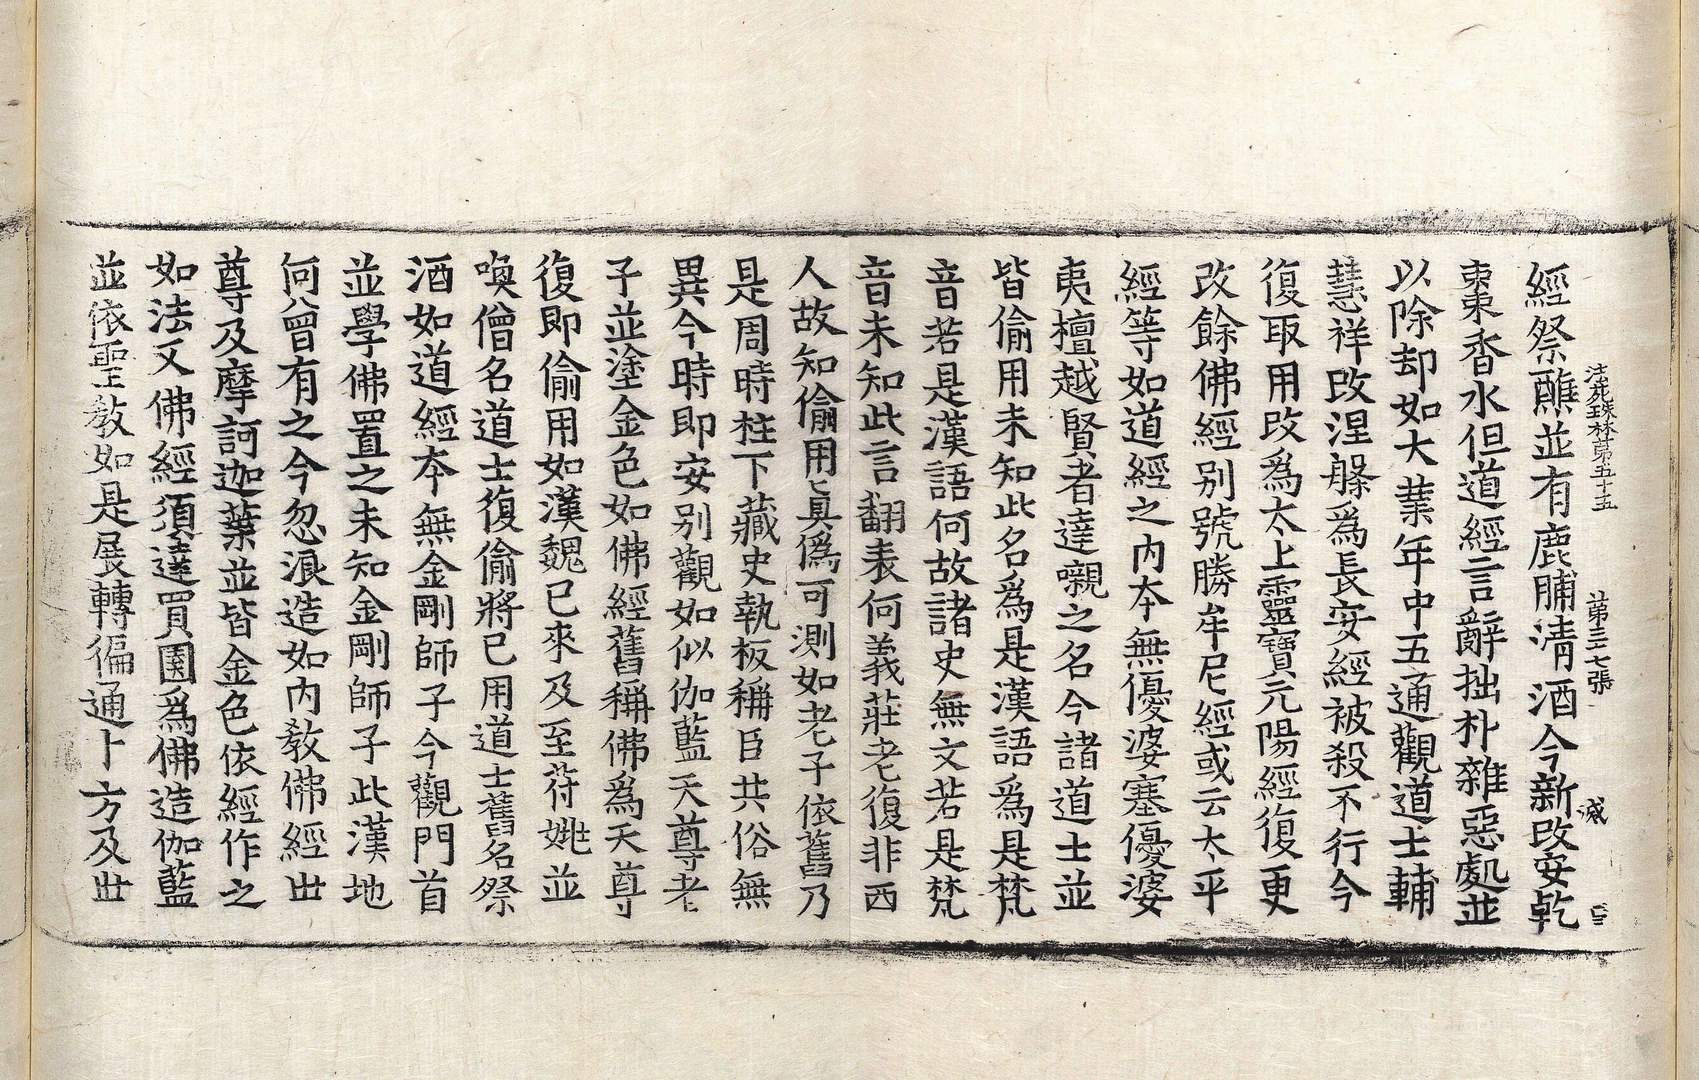 法苑珠林第五十五 第三七張 㓕 亖
經祭醮並有鹿脯清酒今新改安乾
棗香水但道經言辭拙朴雜惡處並
以除却如大業年中五通觀道士輔
慧祥改涅槃為長安經被殺不行今
復取用改為太上靈寶元陽經復更
改餘佛經别號勝牟尼經或云太平
經等如道經之內夲無優婆塞優婆
夷檀越賢者達嚫之名今諸道士並
皆偷用未知此名為是漢語為是梵
音若是漢語何故諸史無文若是梵
音未知此言翻表何義莊老復非西
人故知偷用真偽可測如老子依舊乃
是周時柱下藏史執板稱臣共俗無
異今時即安别觀如似伽藍天尊老
子並塗金色如佛經舊稱佛為天尊
復即偷用如漢魏已來及至苻姚並
喚僧名道士復偷將已用道士舊名祭
酒如道經夲無金剛師子今觀門首
並學佛置之未知金剛師子此漢地
何曾有之今忽浪造如內教佛經丗
尊及摩訶迦葉並皆金色依經作之
如法又佛經須達買園為佛造伽藍
並依聖教如是展轉徧通上方及丗